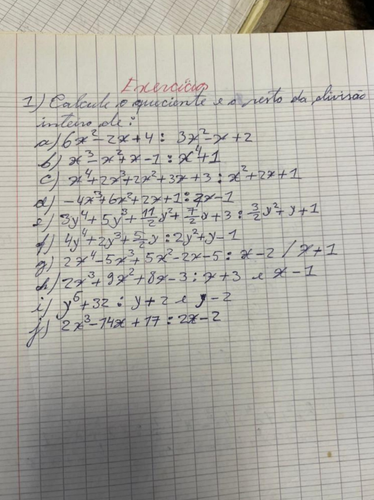 Exercícios
1) Calcule o quociente e o resto da divisão
inteira de:
a) 6x²-2x+4 : 3x²-x+2
b) x³-x²+x-1 : x⁴+1
c) x⁴+2x³+2x²+3x+3 : x²+2x+1
d) -4x³+6x²+2x+1 : 2x-1
e) 3y⁴+5y³+11/2y²+7/2y+3 : 3/2y²+y+1
f) 4y⁴+2y³+5/2y : 2y²+y-1
g) 2x⁴-5x³+5x²-2x-5 : x-2 / x+1
h) 2x³+9x²+8x-3 : x+3 e x-1
i) y⁵+32 : y+2 e y-2
j) 2x³-14x+17 : 2x-2